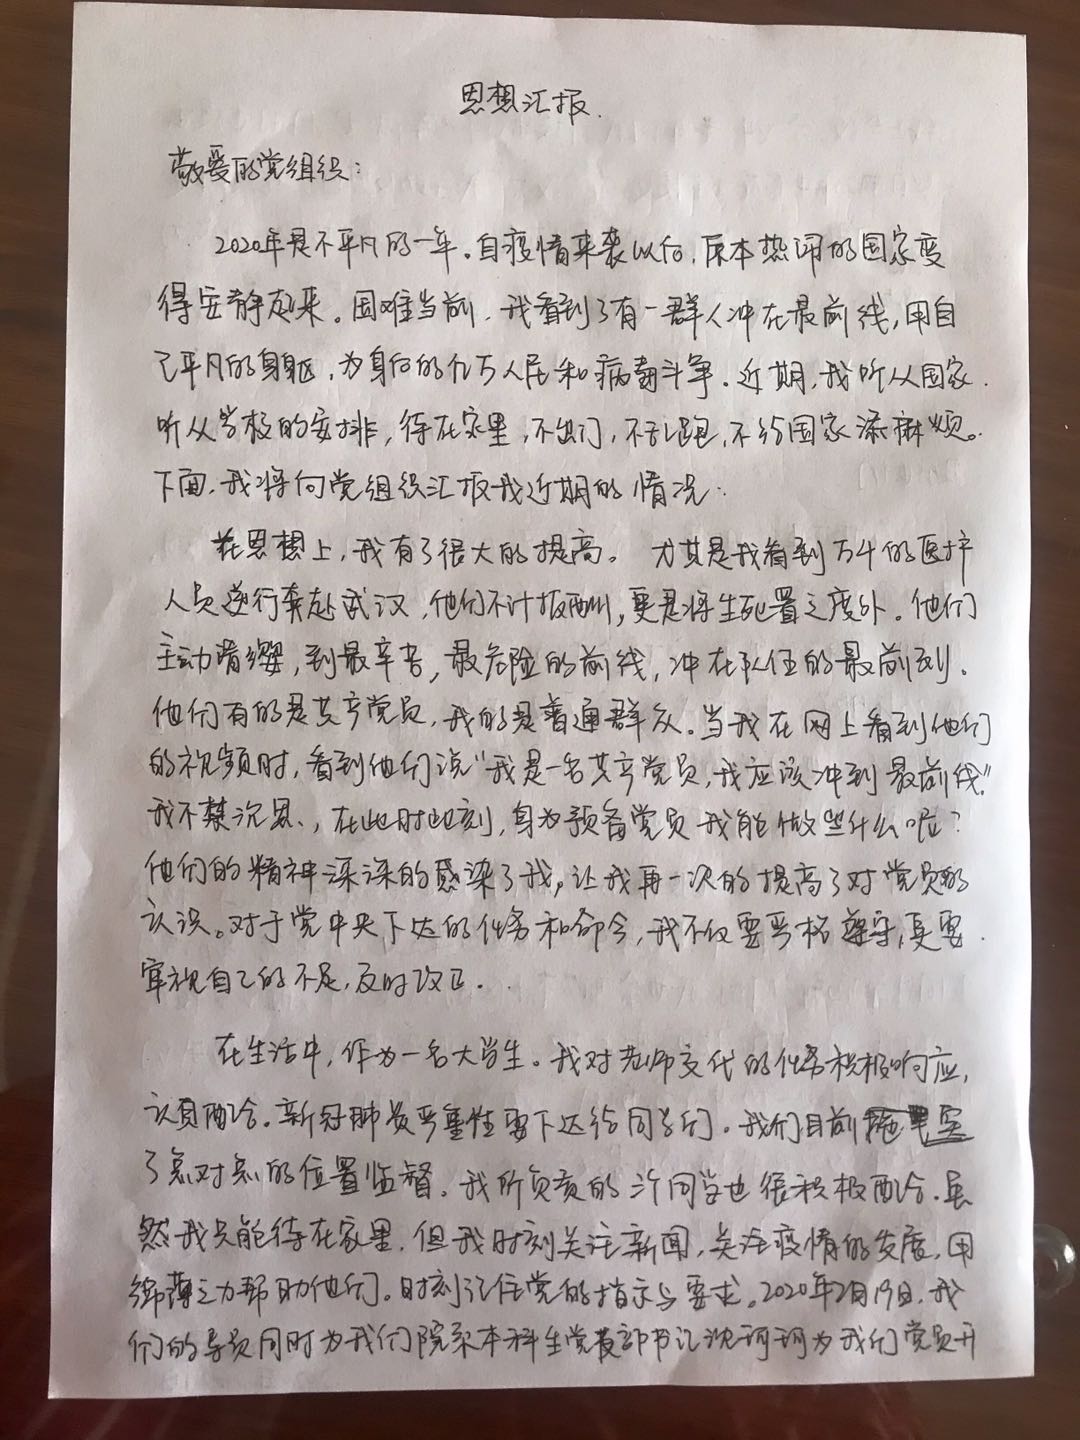 思想汇报.
敬爱的党组织：
2020年是不平凡的一年。自疫情来袭以后，原本热闹的国家变
得安静起来。困难当前，我看到了有一群人冲在最前线，用自
己平凡的身躯，为身后的亿万人民和病毒斗争。近期，我听从国家
听从学校的安排，待在家里，不出门，不乱跑，不给国家添麻烦。
下面，我将向党组织汇报我近期的情况：
在思想上，我有了很大的提高。尤其是我看到万千的医护
人员逆行奔赴武汉，他们不计报酬，更是将生死置之度外。他们
主动请缨，到最辛苦，最危险的前线，冲在队伍的最前列。
他们有的是共产党员，我的是普通群众。当我在网上看到他们
的视频时，看到他们说“我是一名共产党员，我应该冲到最前线”
我不禁沉思，在此时此刻，身为预备党员我能做些什么呢？
他们的精神深深的感染了我，让我再一次的提高了对党员的
认识。对于党中央下达的任务和命令，我不仅要严格遵守，更要
审视自己的不足，及时改正。
在生活中，作为一名大学生。我对老师交代的任务积极响应，
认真配合。新冠肺炎严重性要下达给同学们。我们目前实
了点对点的位置监督。我所负责的许同学也很积极配合。虽
然我只能待在家里，但我时刻关注新闻，关注疫情的发展，用
绵薄之力帮助他们。时刻记住党的指示与要求。2020年2月19日，我
们的导员同时为我们院系本科生党支部书记沈珂珂为我们党员开